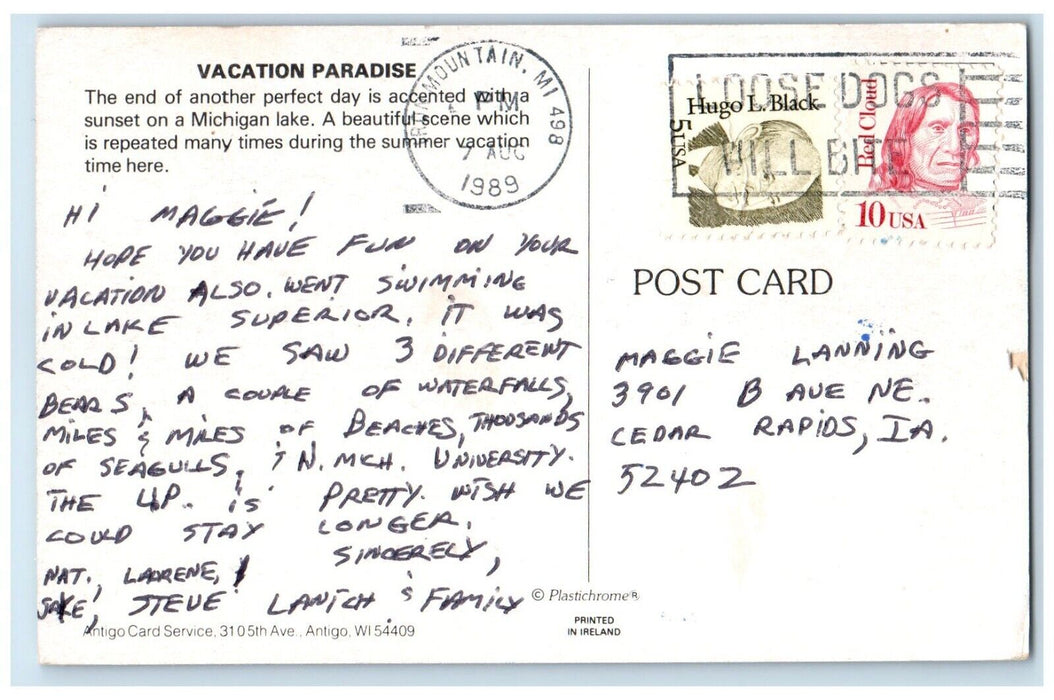 VACATION PARADISE
The end of another perfect day is accented with a
sunset on a Michigan lake. A beautiful scene which
is repeated many times during the summer vacation
time here.
MOUNTAIN, MI 498
PM
7 AUG
1989
LOOSE DOGS
WILL BITE
Hugo L. Black
5 USA
Red Cloud
10 USA
HI MAGGIE!
HOPE YOU HAVE FUN ON YOUR
VACATION ALSO. WENT SWIMMING
IN LAKE SUPERIOR. IT WAS
COLD! WE SAW 3 DIFFERENT
BEARS, A COUPLE OF WATERFALLS,
MILES & MILES OF BEACHES, THOUSANDS
OF SEAGULLS, & N. MCH. UNIVERSITY.
THE U.P. IS PRETTY. WISH WE
COULD STAY LONGER.
SINCERELY,
NAT, LAURENE,
JAKE, STEVE LANICH & FAMILY
POST CARD
MAGGIE LANNING
3901 B AVE NE.
CEDAR RAPIDS, IA.
52402
© Plastichrome®
PRINTED
IN IRELAND
Antigo Card Service, 310 5th Ave., Antigo, WI 54409